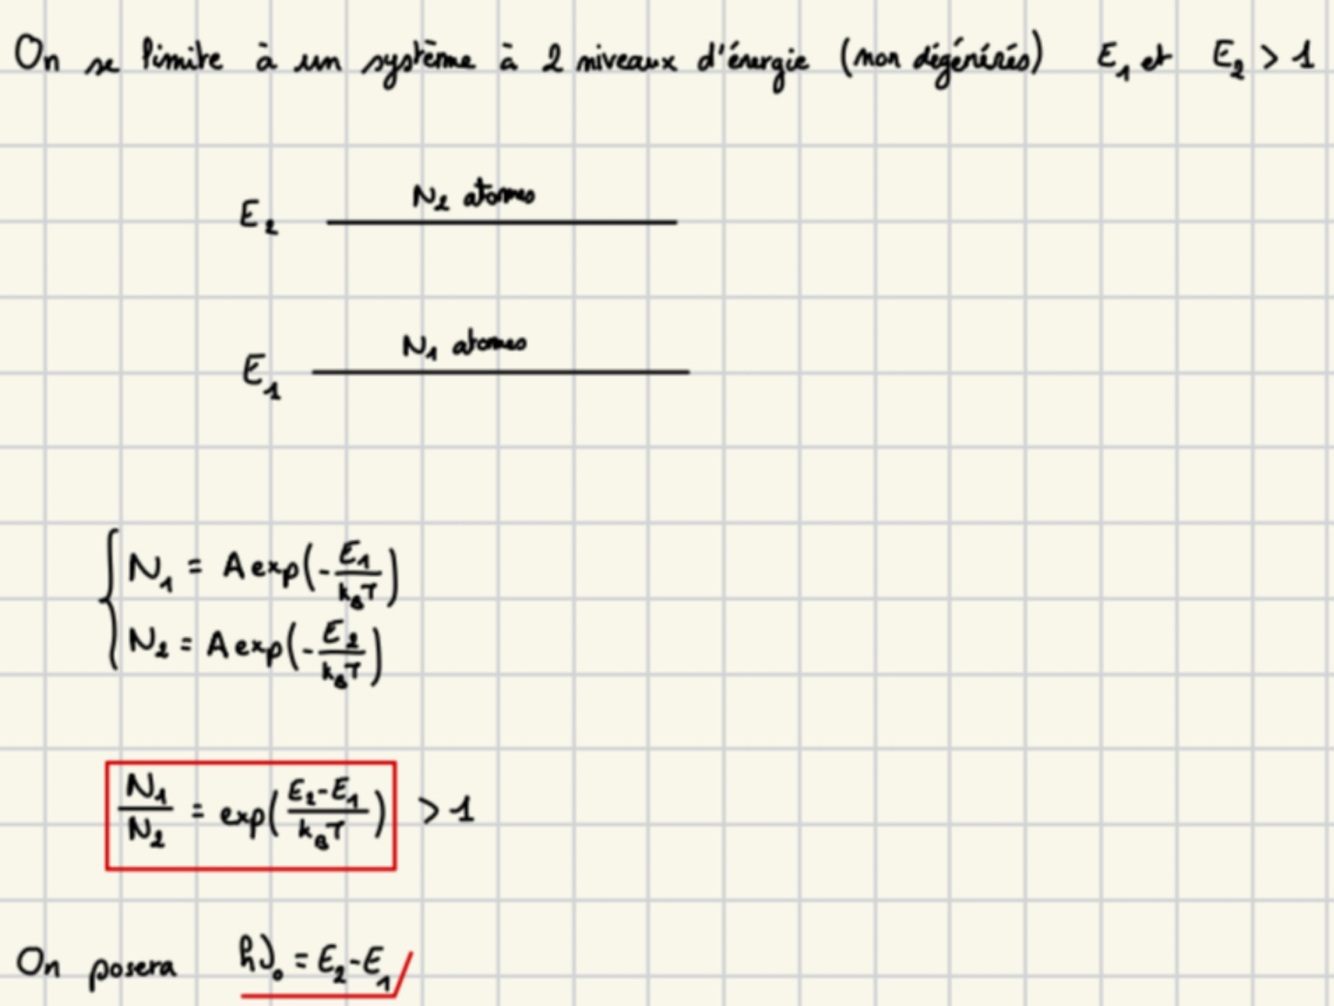 On se limite à un système à 2 niveaux d'énergie (non dégénérés) E₁ et E₂ > 1
N₂ atomes
E₂
N₁ atomes
E₁
N₁ = A exp(-E₁/k_BT)
N₂ = A exp(-E₂/k_BT)
N₁/N₂ = exp((E₂-E₁)/k_BT) > 1
On posera hν₀ = E₂-E₁